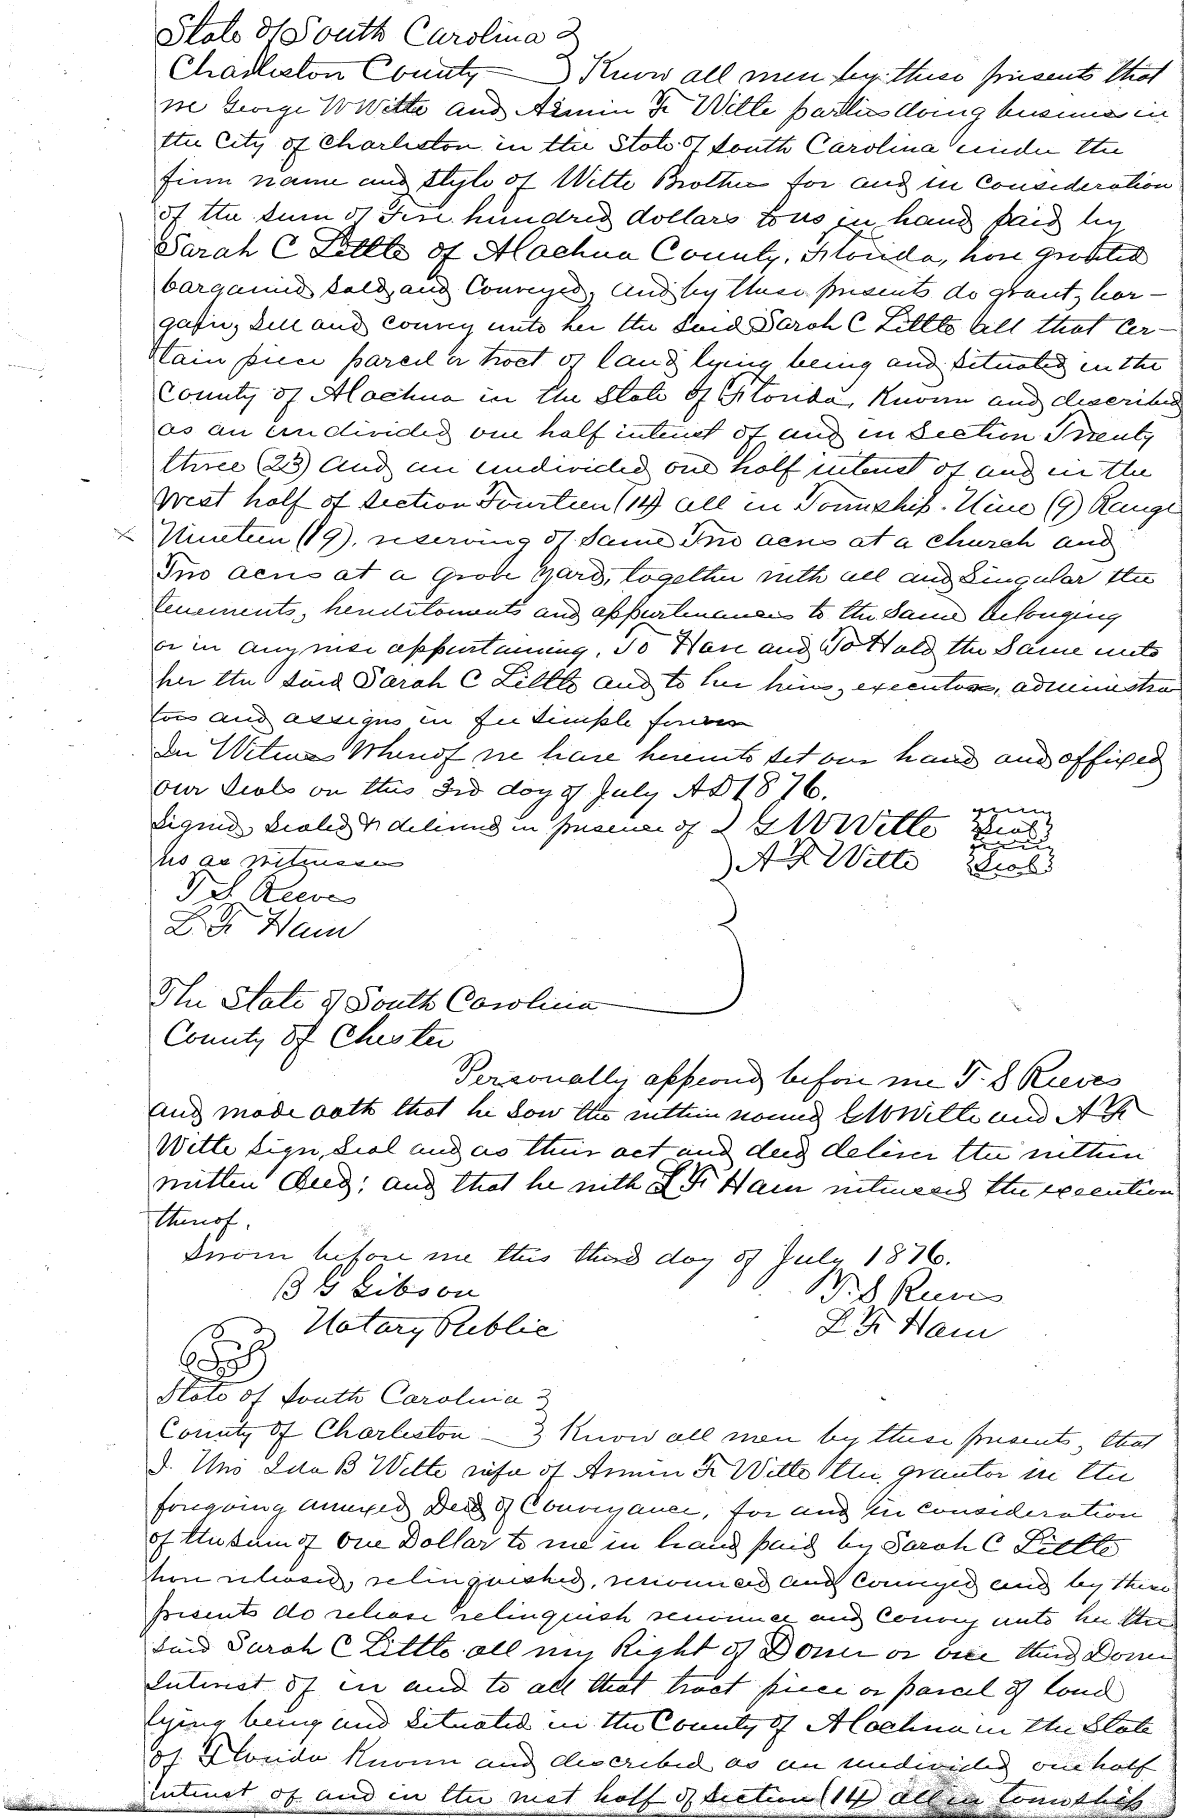 State of South Carolina }
Charleston County } Know all men by these presents that
we George W Witte and Armin F. Witte parties doing business in
the City of Charleston in the State of South Carolina under the
firm name and style of Witte Brothers for and in Consideration
of the sum of Five hundred dollars to us in hand paid by
Sarah C Little of Alachua County, Florida, have granted
bargained sold, and Conveyed, and by these presents do grant, bar-
gain, sell and convey unto her the said Sarah C Little all that cer-
tain piece parcel or tract of land lying being and situated in the
County of Alachua in the State of Florida, Known and described
as an undivided one half interest of and in Section Twenty
three (23) and an undivided one half interest of and in the
West half of Section Fourteen (14) all in Township. Nine (9) Range
Nineteen (19), reserving of same Two acres at a church and
Two acres at a grave yard, together with all and Singular the
tenements, hereditaments and appurtenances to the same belonging
or in anywise appertaining. To Have and To Hold the Same unto
her the said Sarah C Little and to her heirs, executors, administra
tors and assigns in fee simple forever
In Witness Whereof we have hereunto set our hand and affixed
our seals on this 3rd day of July AD 1876.
Signed Sealed & delivered in presence of } G W Witte Seal
us as witnesses } A F. Witte Seal
T S. Reeves
L. F. Ham
The State of South Carolina
County of Chester
Personally appeared before me T. S Reeves
and made oath that he saw the within named G W Witte and A F
Witte sign, seal and as their act and deed deliver the within
written deed; and that he with L F. Ham witnessed the execution
thereof.
Sworn before me this third day of July 1876.
B G Gibson T. S Reeves
Notary Public L F. Ham
Seal
State of South Carolina }
County of Charleston } Know all men by these presents, that
I. Mrs Ida B Witte wife of Armin F. Witte the grantor in the
foregoing annexed Deed of Conveyance, for and in consideration
of the sum of One Dollar to me in hand paid by Sarah C Little
have released, relinquished, renounced and Conveyed and by these
presents do release relinquish renounce and Convey unto her the
said Sarah C Little all my Right of Dower or one third Dower
Interest of in and to all that tract piece or parcel of land
lying being and Situated in the County of Alachua in the State
of Florida Known and described as an undivided one half
interest of and in the west half of Section (14) all in township